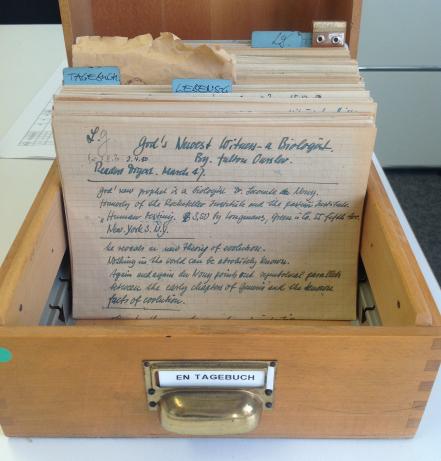 Lg.
TAGEBUCH
LEBENSG
Lg
God's Newest Witness - a Biologist.
By. Fulton Oursler.
Readers Digest. March 47.
god's new prophet is a biologist Dr. Lecomte du Noüy.
formerly of the Rockefeller Institute and the Pasteur Institute.
"Human Destiny. $ 3,50 by Longmans, Green & Co. 55 fifth Av.
New York 3. N.Y.
he reveals a new theory of evolution.
Nothing in the world can be absolutely known.
Again and again du Noüy points out symbolical parallels
between the early chapters of Genesis and the known
facts of evolution.
EN TAGEBUCH